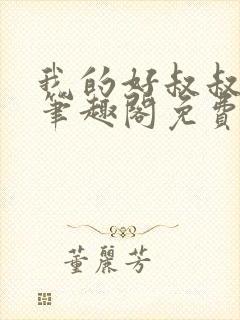 我的好叔叔
笔趣阁免费
董麗芳